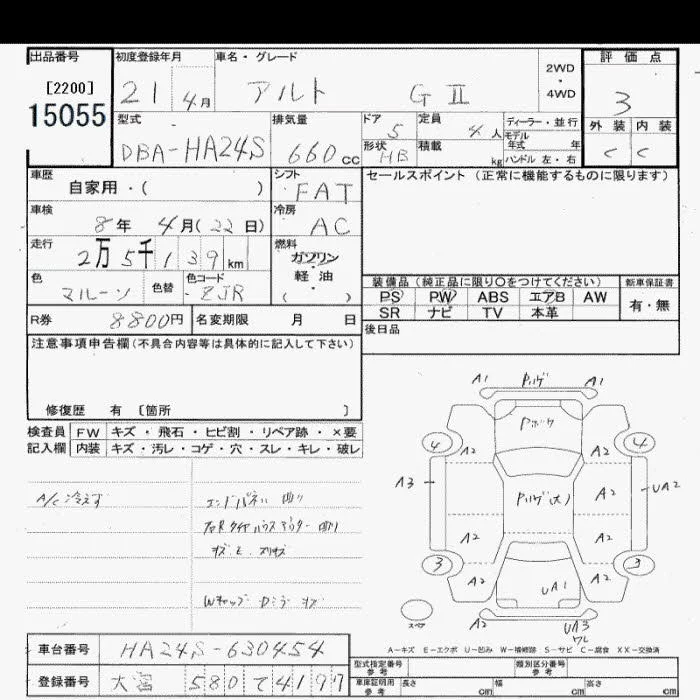 出品番号
[2200]
15055
初度登録年月
21 4月
車名・グレード
アルト GⅡ
2WD
・
4WD
評価点
3
外装 内装
C C
型式
DBA-HA24S
排気量
660cc
ドア 5
形状 HB
定員 4人
積載 kg
ディーラー・並行
モデル年式 年
ハンドル 左・右
車歴
自家用・( )
シフト
FAT
セールスポイント (正常に機能するものに限ります)
車検
8年 4月(22日)
冷房
AC
走行
2万5千139km
燃料
ガソリン
・
軽油
( )
色
マルーン
色替
色コード
ZJR
装備品 (純正品に限り○をつけてください)
PS PW ABS エアB AW
SR ナビ TV 本革
新車保証書
有・無
R券 8800円
名変期限 月 日
後日品
注意事項申告欄(不具合内容等は具体的に記入して下さい)
修復歴 有 [箇所 ]
検査員 FW キズ・飛石・ヒビ割・リペア跡・×要
記入欄 内装 キズ・汚レ・コゲ・穴・スレ・キレ・破レ
A/C冷えず
エンドパネル 曲り
右Rタイヤハウスアウター 曲り
Wキャップ Dミラーキズ
A1 A1
4 4
A2 A2
A3 A2 UA2
A2 A2
3 3
A2 UA1 A2
スペア A2 UA3
ワレ
A-キズ E-エクボ U-凹み W-補修跡 S-サビ C-腐食 XX-交換済
車台番号 HA24S-630454
登録番号 大宮 580 て 4197
型式指定番号 参考
類別区分番号 参考
車庫証明用 参考 長さ cm 幅 cm 高さ cm